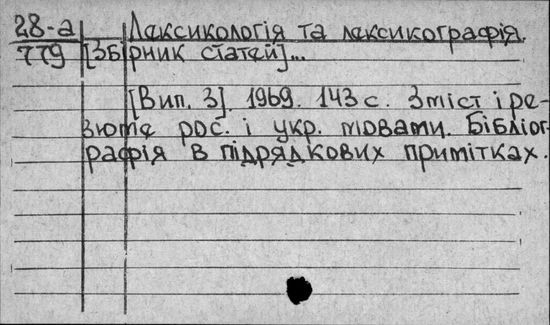 28-а Лексикологія та лексикографія.
779 [Збірник статей]...
[Вип. 3]. 1969. 143 с. Зміст і ре-
зюме рос. і укр. мовами. Бібліог-
рафія в підрядкових примітках.